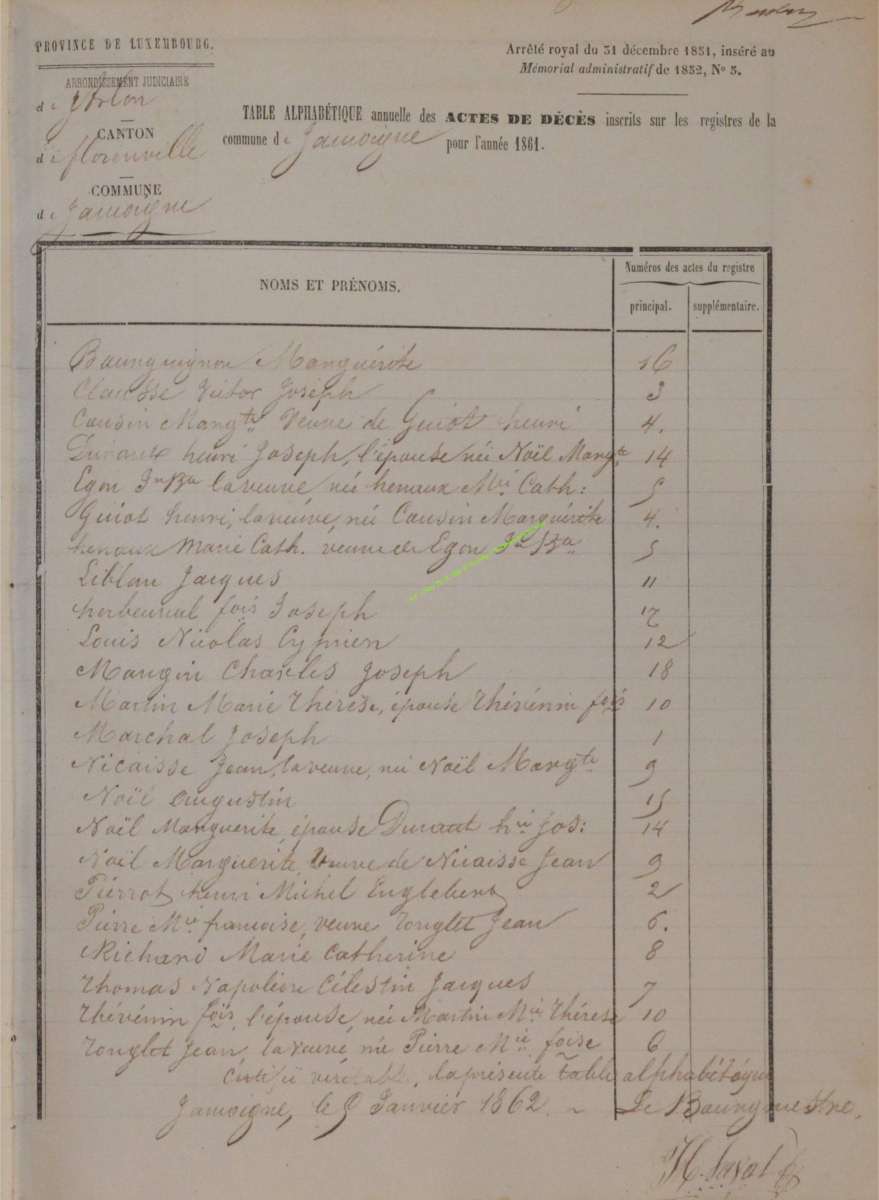 PROVINCE DE LUXEMBOURG.
Arrêté royal du 31 décembre 1851, inséré au
Mémorial administratif de 1852, No 3.
ARRONDISSEMENT JUDICIAIRE
d'Arlon
CANTON
de florenville
COMMUNE
de Jamoigne
TABLE ALPHABÉTIQUE annuelle des ACTES DE DÉCÈS inscrits sur les registres de la
commune de Jamoigne pour l'année 1861.
NOMS ET PRÉNOMS.
Numéros des actes du registre
principal. supplémentaire.
Bourguignon Marguérite 16
Clausse Victor Joseph 3
Cousin Margte Veuve de Guiot henri 4.
henri Joseph, l'épouse née Noël Margte 14
Egon Jn Bte la veuve née henaux Mie Cath: 5
Guiot henri, la veuve, née Cousin Marguérite 4.
henaux Marie Cath. veuve de Egon Jn Bte 5
Leblan Jacques 11
fois Joseph 17
Louis Nicolas Cyprien 12
Mangin Charles Joseph 18
Martin Marie Thérèse, épouse Thévénin fois 10
Marchal Joseph 1
Nicaisse Jean, la veuve, née Noël Margte 9
Noël Augustin 15
Noël Marguerite, épouse Duraut hri Jos: 14
Noël Marguerite, Veuve de Nicaisse Jean 9
Pierrot henri Michel Englebert 2
Pierre Mie francoise, veuve Tonglet Jean 6.
Richard Marie Catherine 8
Thomas Napoléon Célestin Jacques 7
Thévénin fois, l'épouse, née Martin Mie Thérèse 10
Tonglet Jean, la veuve, née Pierre Mie foise 6
Certifié véritable, la présente Table alphabétique
Jamoigne, le 9 Janvier 1862. Le Bourgmestre,